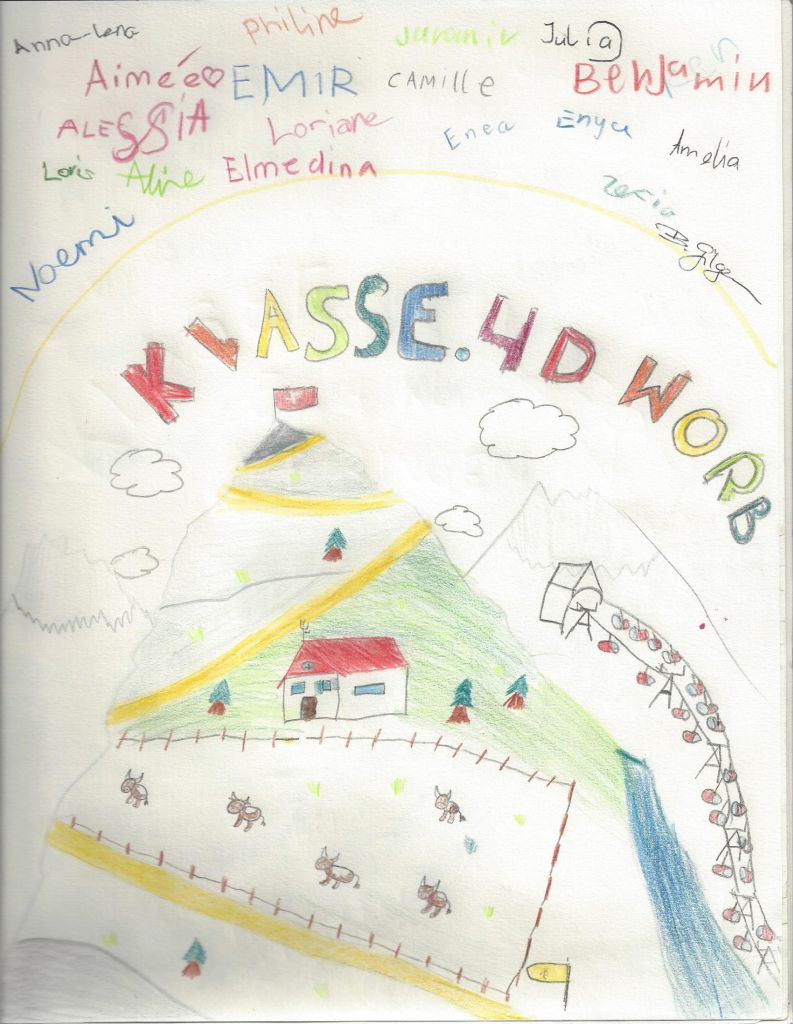 Anna-Lena Philine Julia
Aimée EMIR CAMILLE Benjamin
ALESSIA Loriane Enea Enya
Amelia
Loris Aline Elmedina
Noemi
KLASSE. 4D WORB